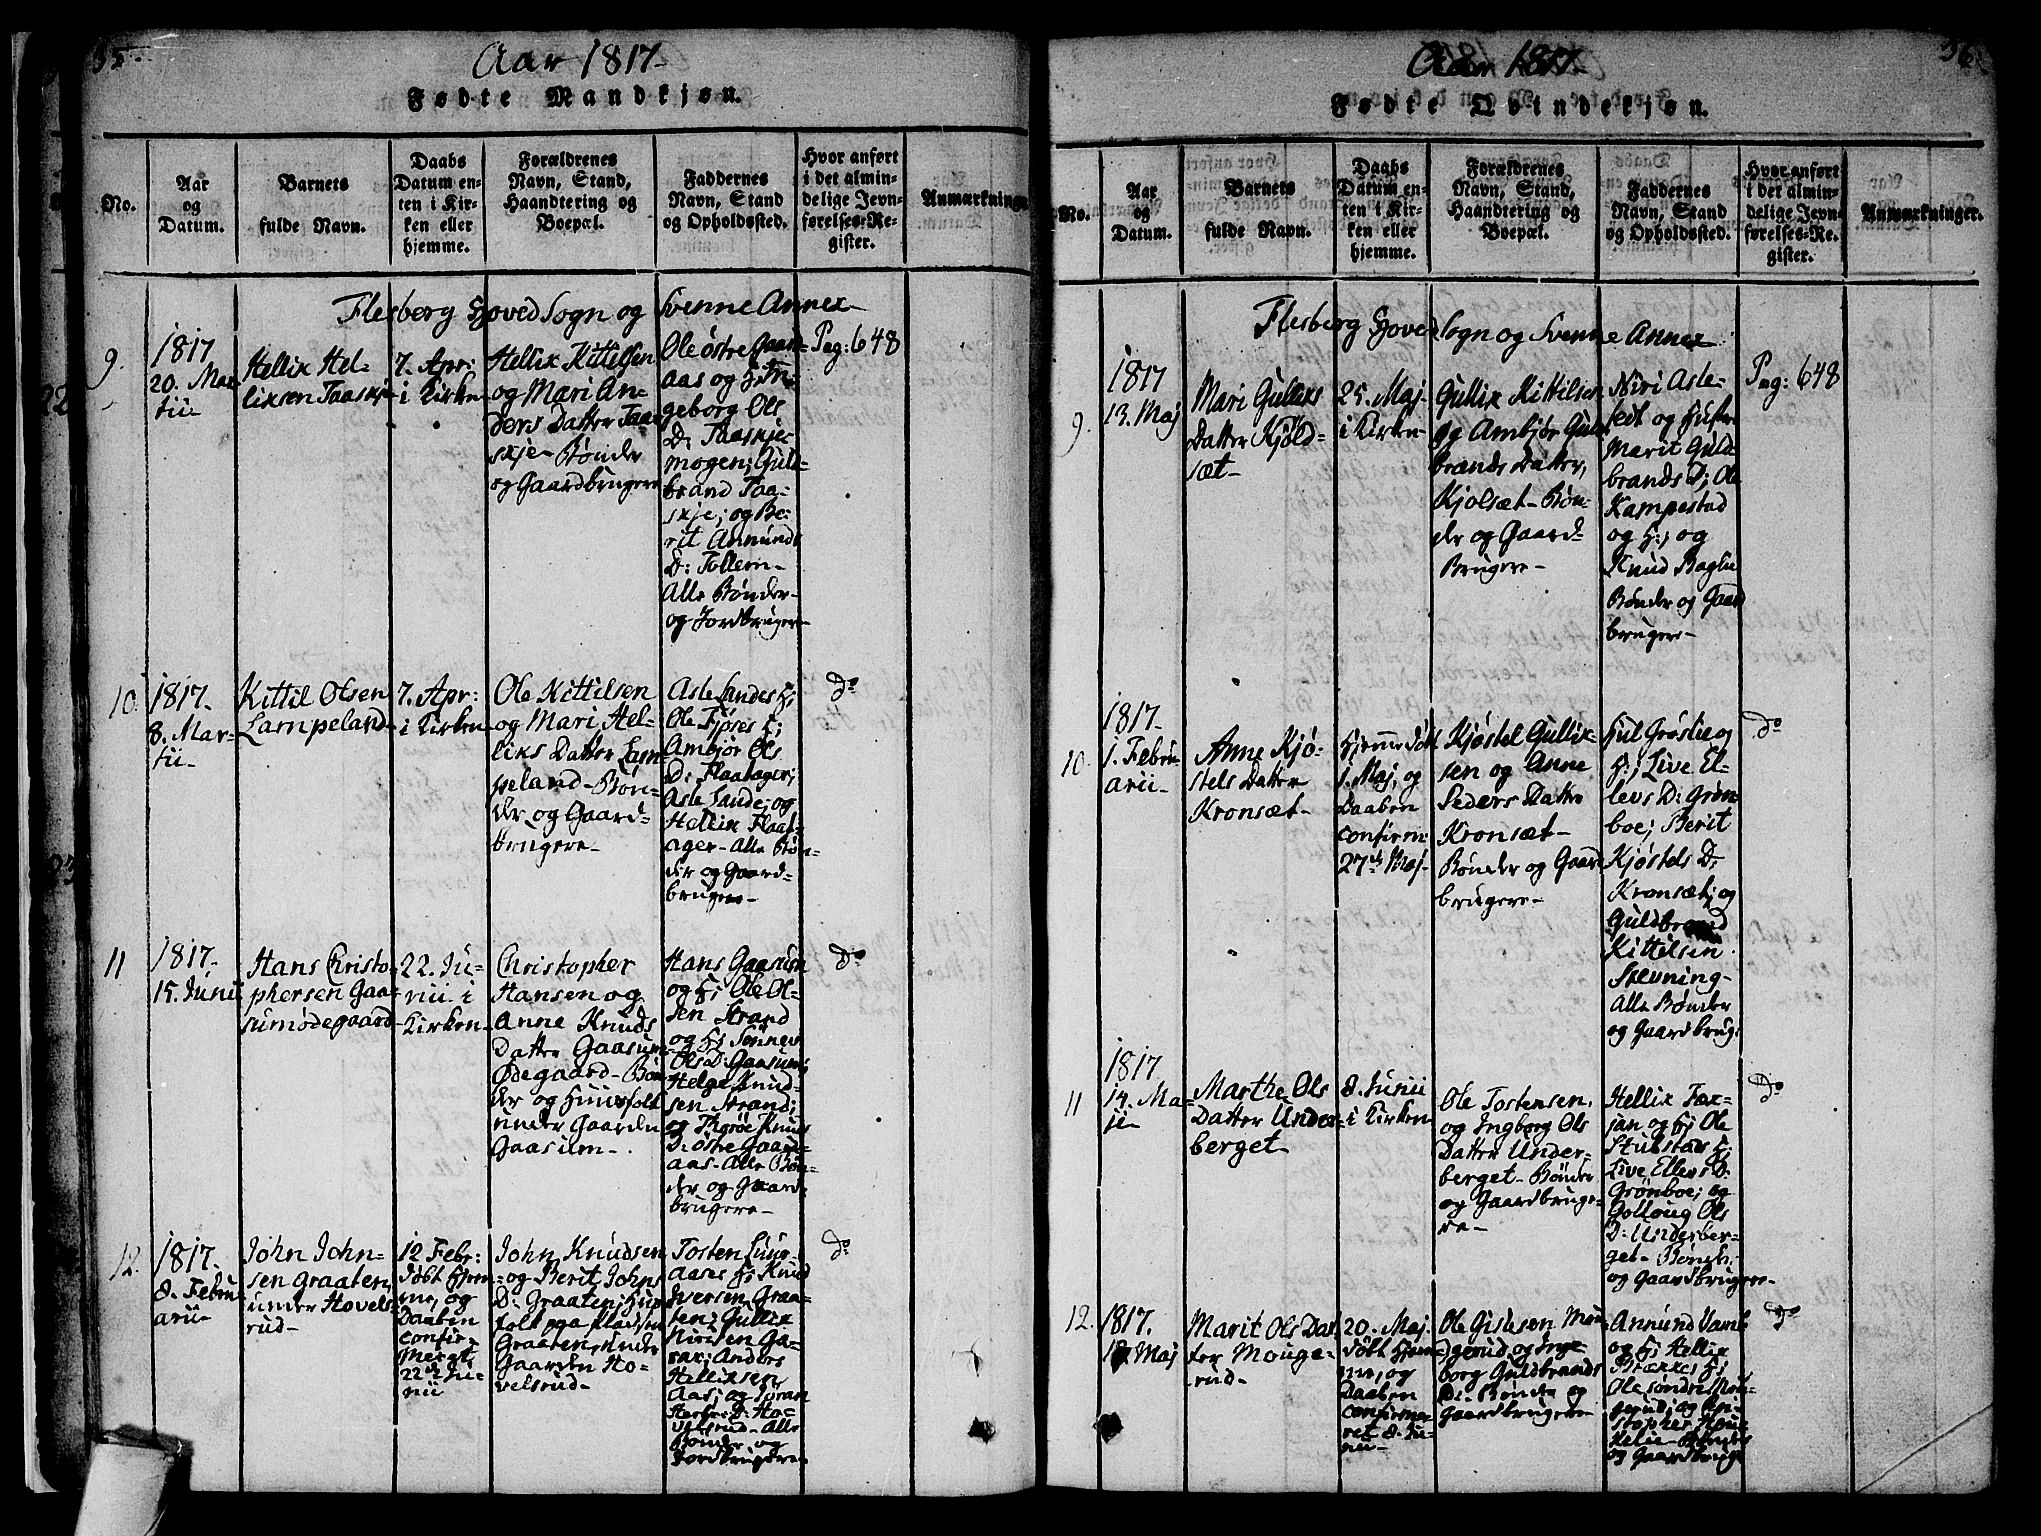 35.
Aar 1817.
Fødte Mandkjøn.
No.
Aar
og
Datum.
Barnets
fulde Navn.
Daabs
Datum en-
ten i Kir-
ken eller
hjemme.
Forældrenes
Navn, Stand,
Haandtering og
Boepæl.
Faddernes
Navn, Stand
og Opholdssted.
Hvor anført
i det almin-
delige Jevn-
førelses-Re-
gister.
Anmærkninger
Flesberg Hoved Sogn og Svenne Annex
9.
1817
20. Mar-
tii-
Hellix Hel-
lixsen Taaskje
7. Apr:
i Kirken
Hellix Kittelsen
og Mari An-
ders Datter Taa-
skje- Bønder
og Gaardbrugere
Ole østre Gaard-
aas og H; In-
geborg Ols
D: Taaskje-
mogen; Guld-
brand Taa-
skje; og Be-
rit Amunds
D: Tollem-
Alle Bønder
og Jordbrugere-
Pag: 648
10.
1817.
8. Mar-
tii-
Kittil Olsen
Lampeland-
7. Apr:
i Kirken
Ole Kittilsen
og Mari Hel-
liks Datter Lam-
peland- Bøn-
der og Gaard-
brugere-
Asle Landes H;
Ole Fjøses H;
Ambjør Ols
D: Flaatager;
Asle Lande; og
Hellix Flaat-
ager- Alle Bøn-
der og Gaard-
brugere-
do
11
1817.
15. Junii
Hans Christo-
phersen Gaa-
sumødegaard
22. Ju-
nii i
Kirken
Christopher
Hansen og
Anne Knuds
Datter Gaasum-
Ødegaard- Bøn-
der og Huusfolk
under Gaarden
Gaasum-
Hans Gaasum
og H; Ole Ol-
sen Strand
og H; Sønnev
Ols D: Gaasum;
Helge Knud-
sen Strand;
og Thgrøe Knuds
D: østre Gaard-
aas- Alle Bøn-
der og Gaard-
brugere-
do
12.
1817.
8. Febru-
arii-
John John-
sen Graaten
under Hovels-
rud-
12 Febr:
døbt hjem-
me, og
Daaben
confir-
meret
22d Ju-
nii
John Knudsen
og Berit Johns
D: Graaten; Huus-
folk paa Pladsen
Graaten, under
Gaarden Ho-
velsrud-
Tosten Luur-
aases H; Knud
Iversen Graa-
ten; Gullix
Nirisen Ga-
vax; Anders
Hellixsen
Aas; og Jøran
D: Ho-
velsrud- Alle
Bønder og
Jordbrugere
do
36.
Aar 1817.
Fødte Qvindekjøn.
No.
Aar
og
Datum.
Barnets
fulde Navn.
Daabs
Datum en-
ten i Kir-
ken eller
hjemme.
Forældrenes
Navn, Stand,
Haandtering og
Boepæl.
Faddernes
Navn, Stand
og Opholdssted.
Hvor anført
i det almin-
delige Jevn-
førelses-Re-
gister.
Anmærkninger.
Flesberg Hoved Sogn og Svenne Annex
9.
1817
13. Maj
Mari Gullixs
Datter Kjøld-
sæt-
25. Maj-
i Kirken-
Gullix Kittilsen
og Ambjør Guld-
brands Datter,
Kjolsæt- Bøn-
der og Gaard-
brugere-
Niri Asle-
tedt og Hustru
Marit Guld-
brands D; Ole
Kampestad
og H; og
Knud Baglie
Bønder og Gaard
brugere-
Pag: 648
10.
1817.
1. Febru-
arii-
Anne Kjø-
stels Datter
Kronsæt-
Hjemmedøbt
1. Maj, og
Daaben
confirm:
27de Maj-
Kjøstel Gullix-
sen og Anne
Peders Datter
Kronsæt-
Bønder og Gaard
brugere-
Hjul Grøslie og
H; Live El-
levs D: Grøn-
boe; Berit
Kjøstels D:
Kronsæt; og
Guldbrand
Kittilsen
Stevning-
Alle Bønder
og Gaardbrug:
do
11
1817.
14. Ma-
ji-
Marthe Ols
Datter Under-
berget-
8. Junii
i Kirken
Ole Tostensen,
og Ingborg Ols
Datter Under-
berget- Bønder
og Gaardbruge-
re-
Hellix Fax-
jan og H; Ole
Stubstads H;
Live Ellevs D:
Grønboe; og
Golloug Ols
D: Underber-
get- Bønder
og Gaardbrugere-
Do
12.
1817.
Maj
Marit Ols Dat-
ter Mouge-
rud-
20. Maj
døbt hjem-
me, og
Daaben
confirme-
ret 8. Ju-
nii-
Ole Gislesen Mou-
gerud og Inge-
borg Guldbrands
D:- Bønder og
Gaardbrugere-
Annund Vame
og H; Hellix
Brækkes H;
Ole søndre Mou-
gerud; og Chri-
stopher Hou-
kelie- Bønder
og Gaardbrug:
do